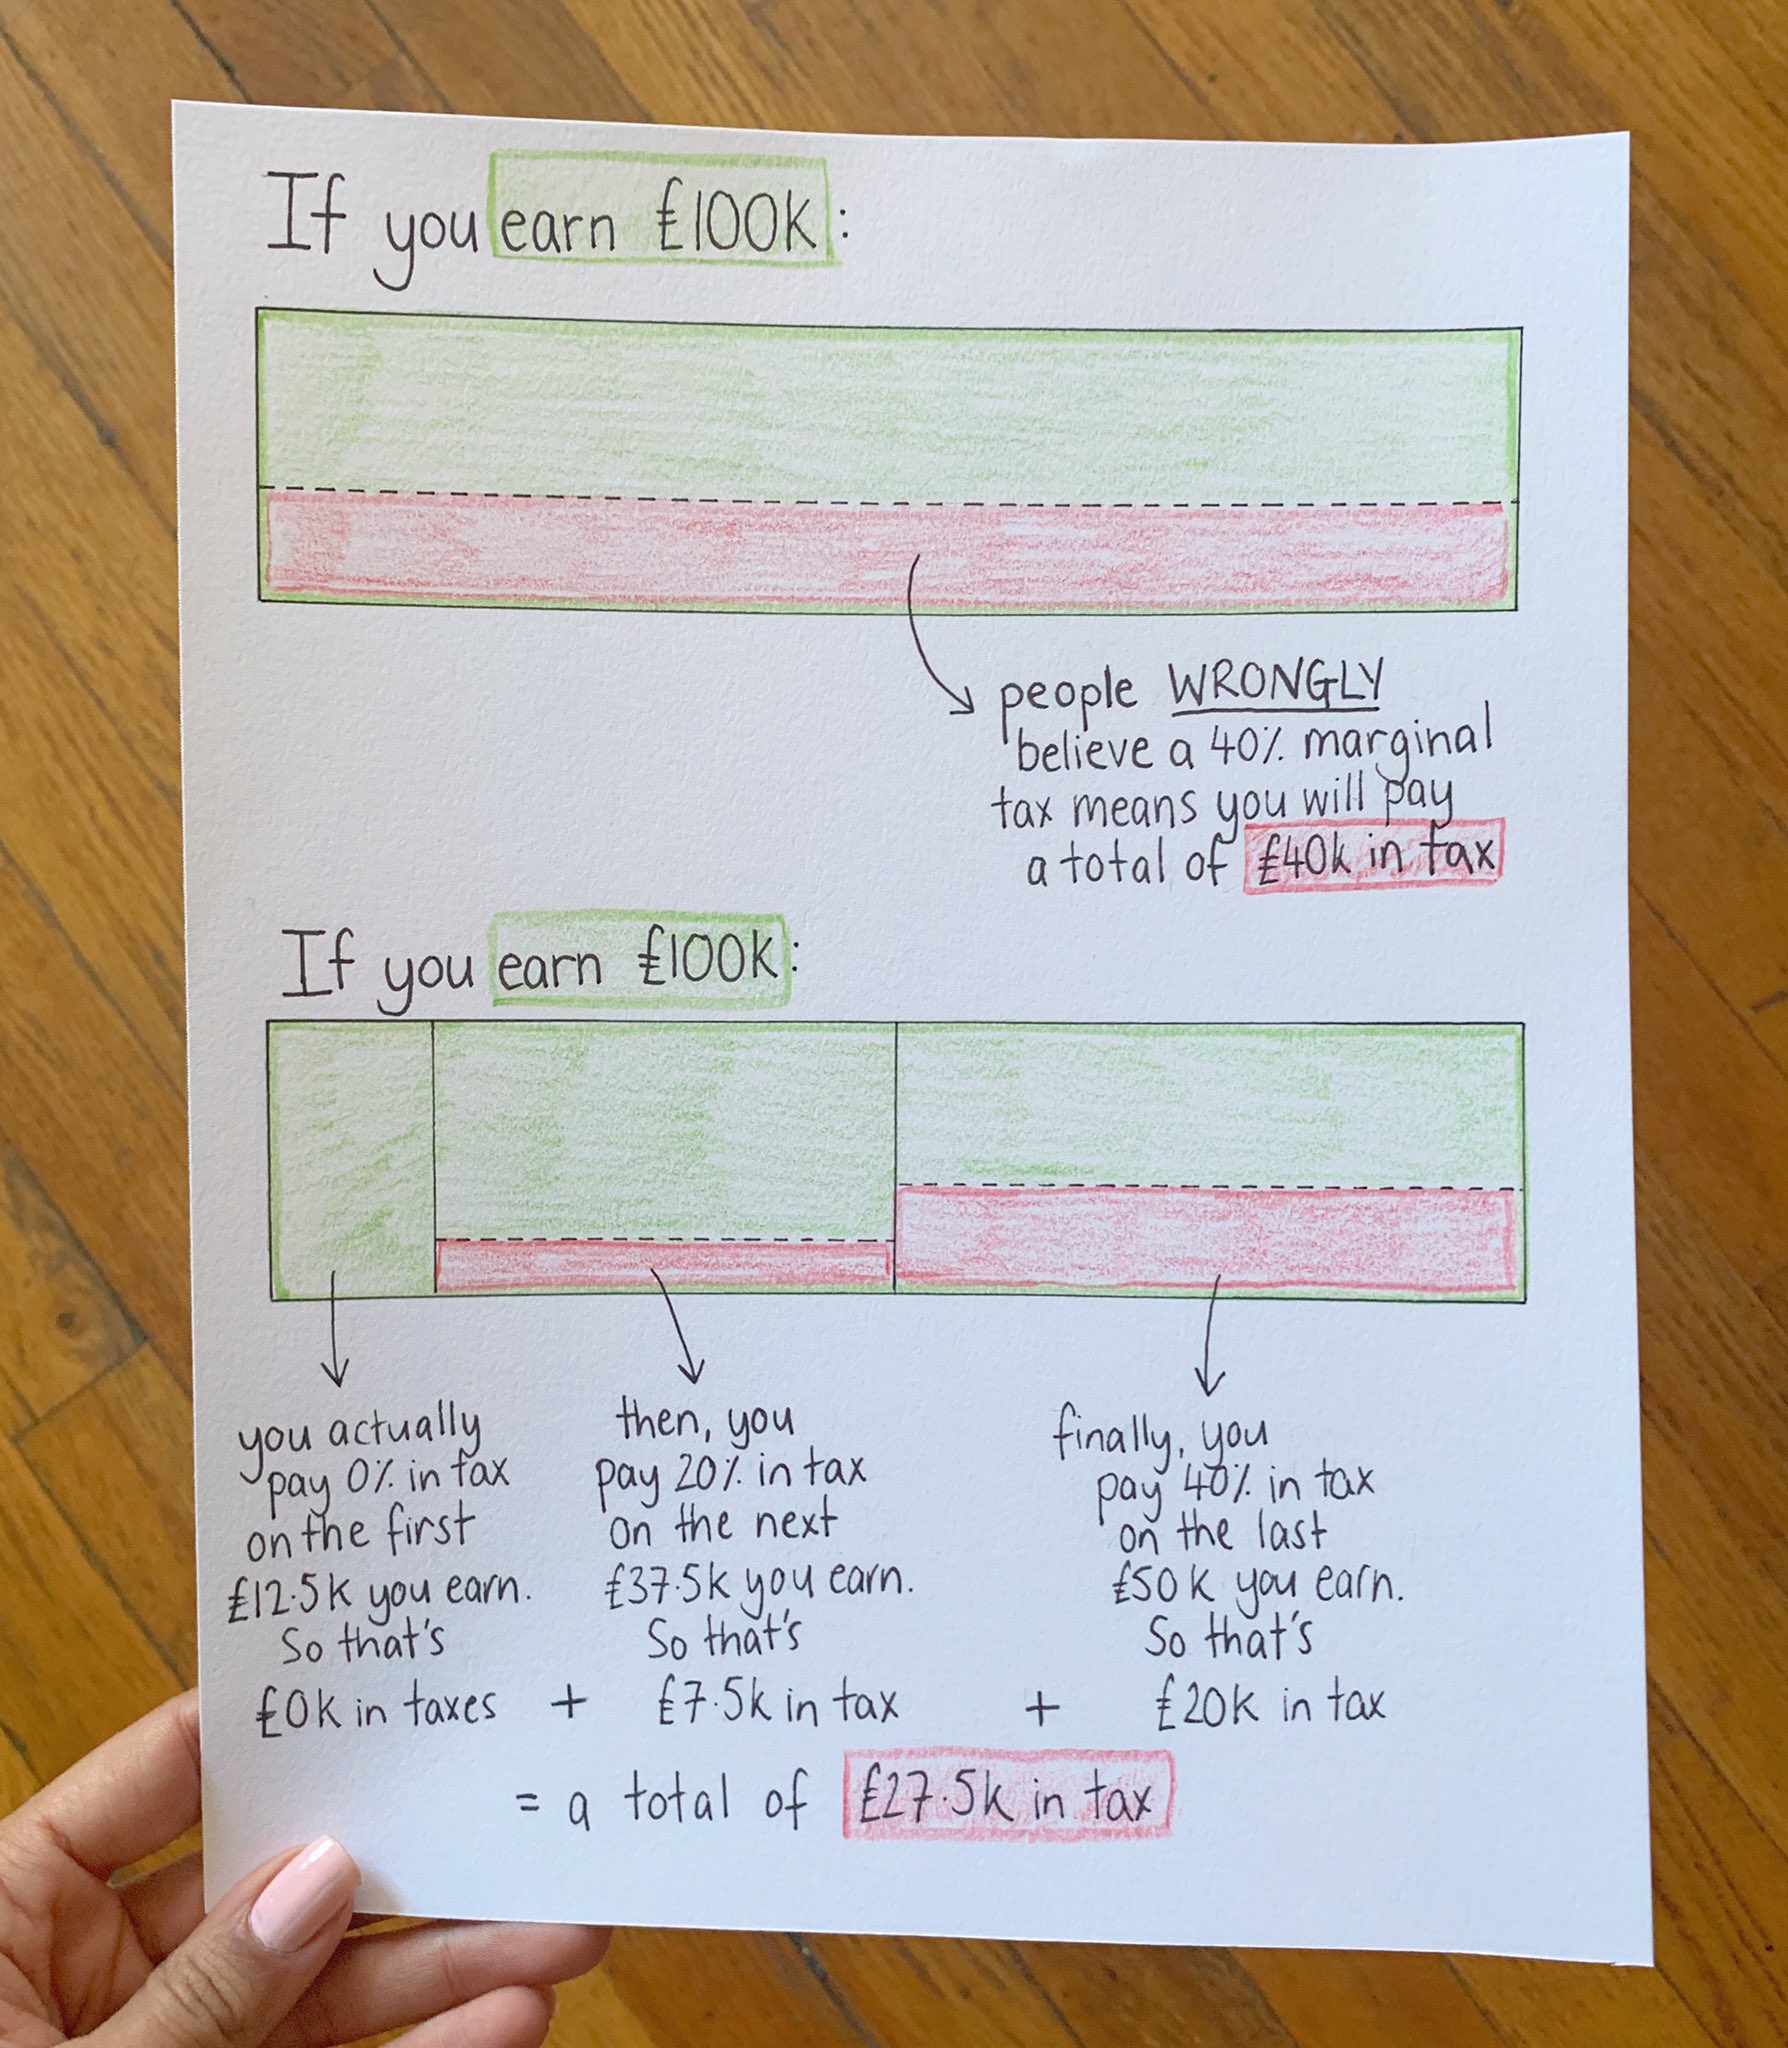 If you earn £100k:
people WRONGLY
believe a 40% marginal
tax means you will pay
a total of £40k in tax
If you earn £100k:
you actually
pay 0% in tax
on the first
£12.5k you earn.
So that's
£0k in taxes
then, you
pay 20% in tax
on the next
£37.5k you earn.
So that's
+ £7.5k in tax
finally, you
pay 40% in tax
on the last
£50k you earn.
So that's
+ £20k in tax
= a total of £27.5k in tax